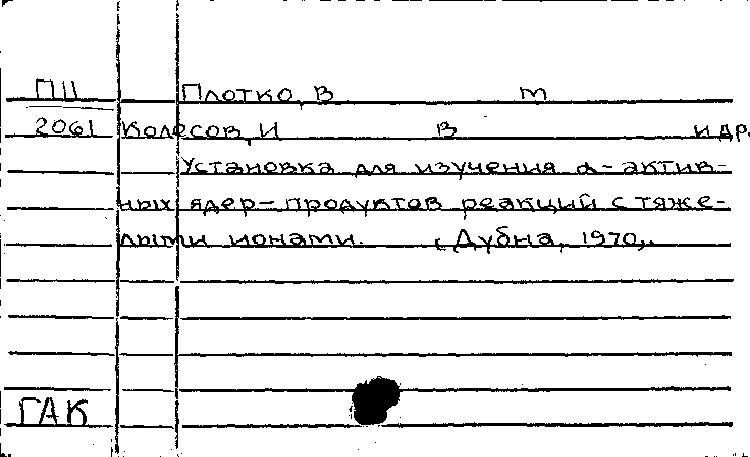 П11 Плотко, В т
2061 Колесов, И В и др.
Установка для изучения α-актив-
ных ядер-продуктов реакций с тяже-
лыми ионами. Дубна, 1970,.
ГАК